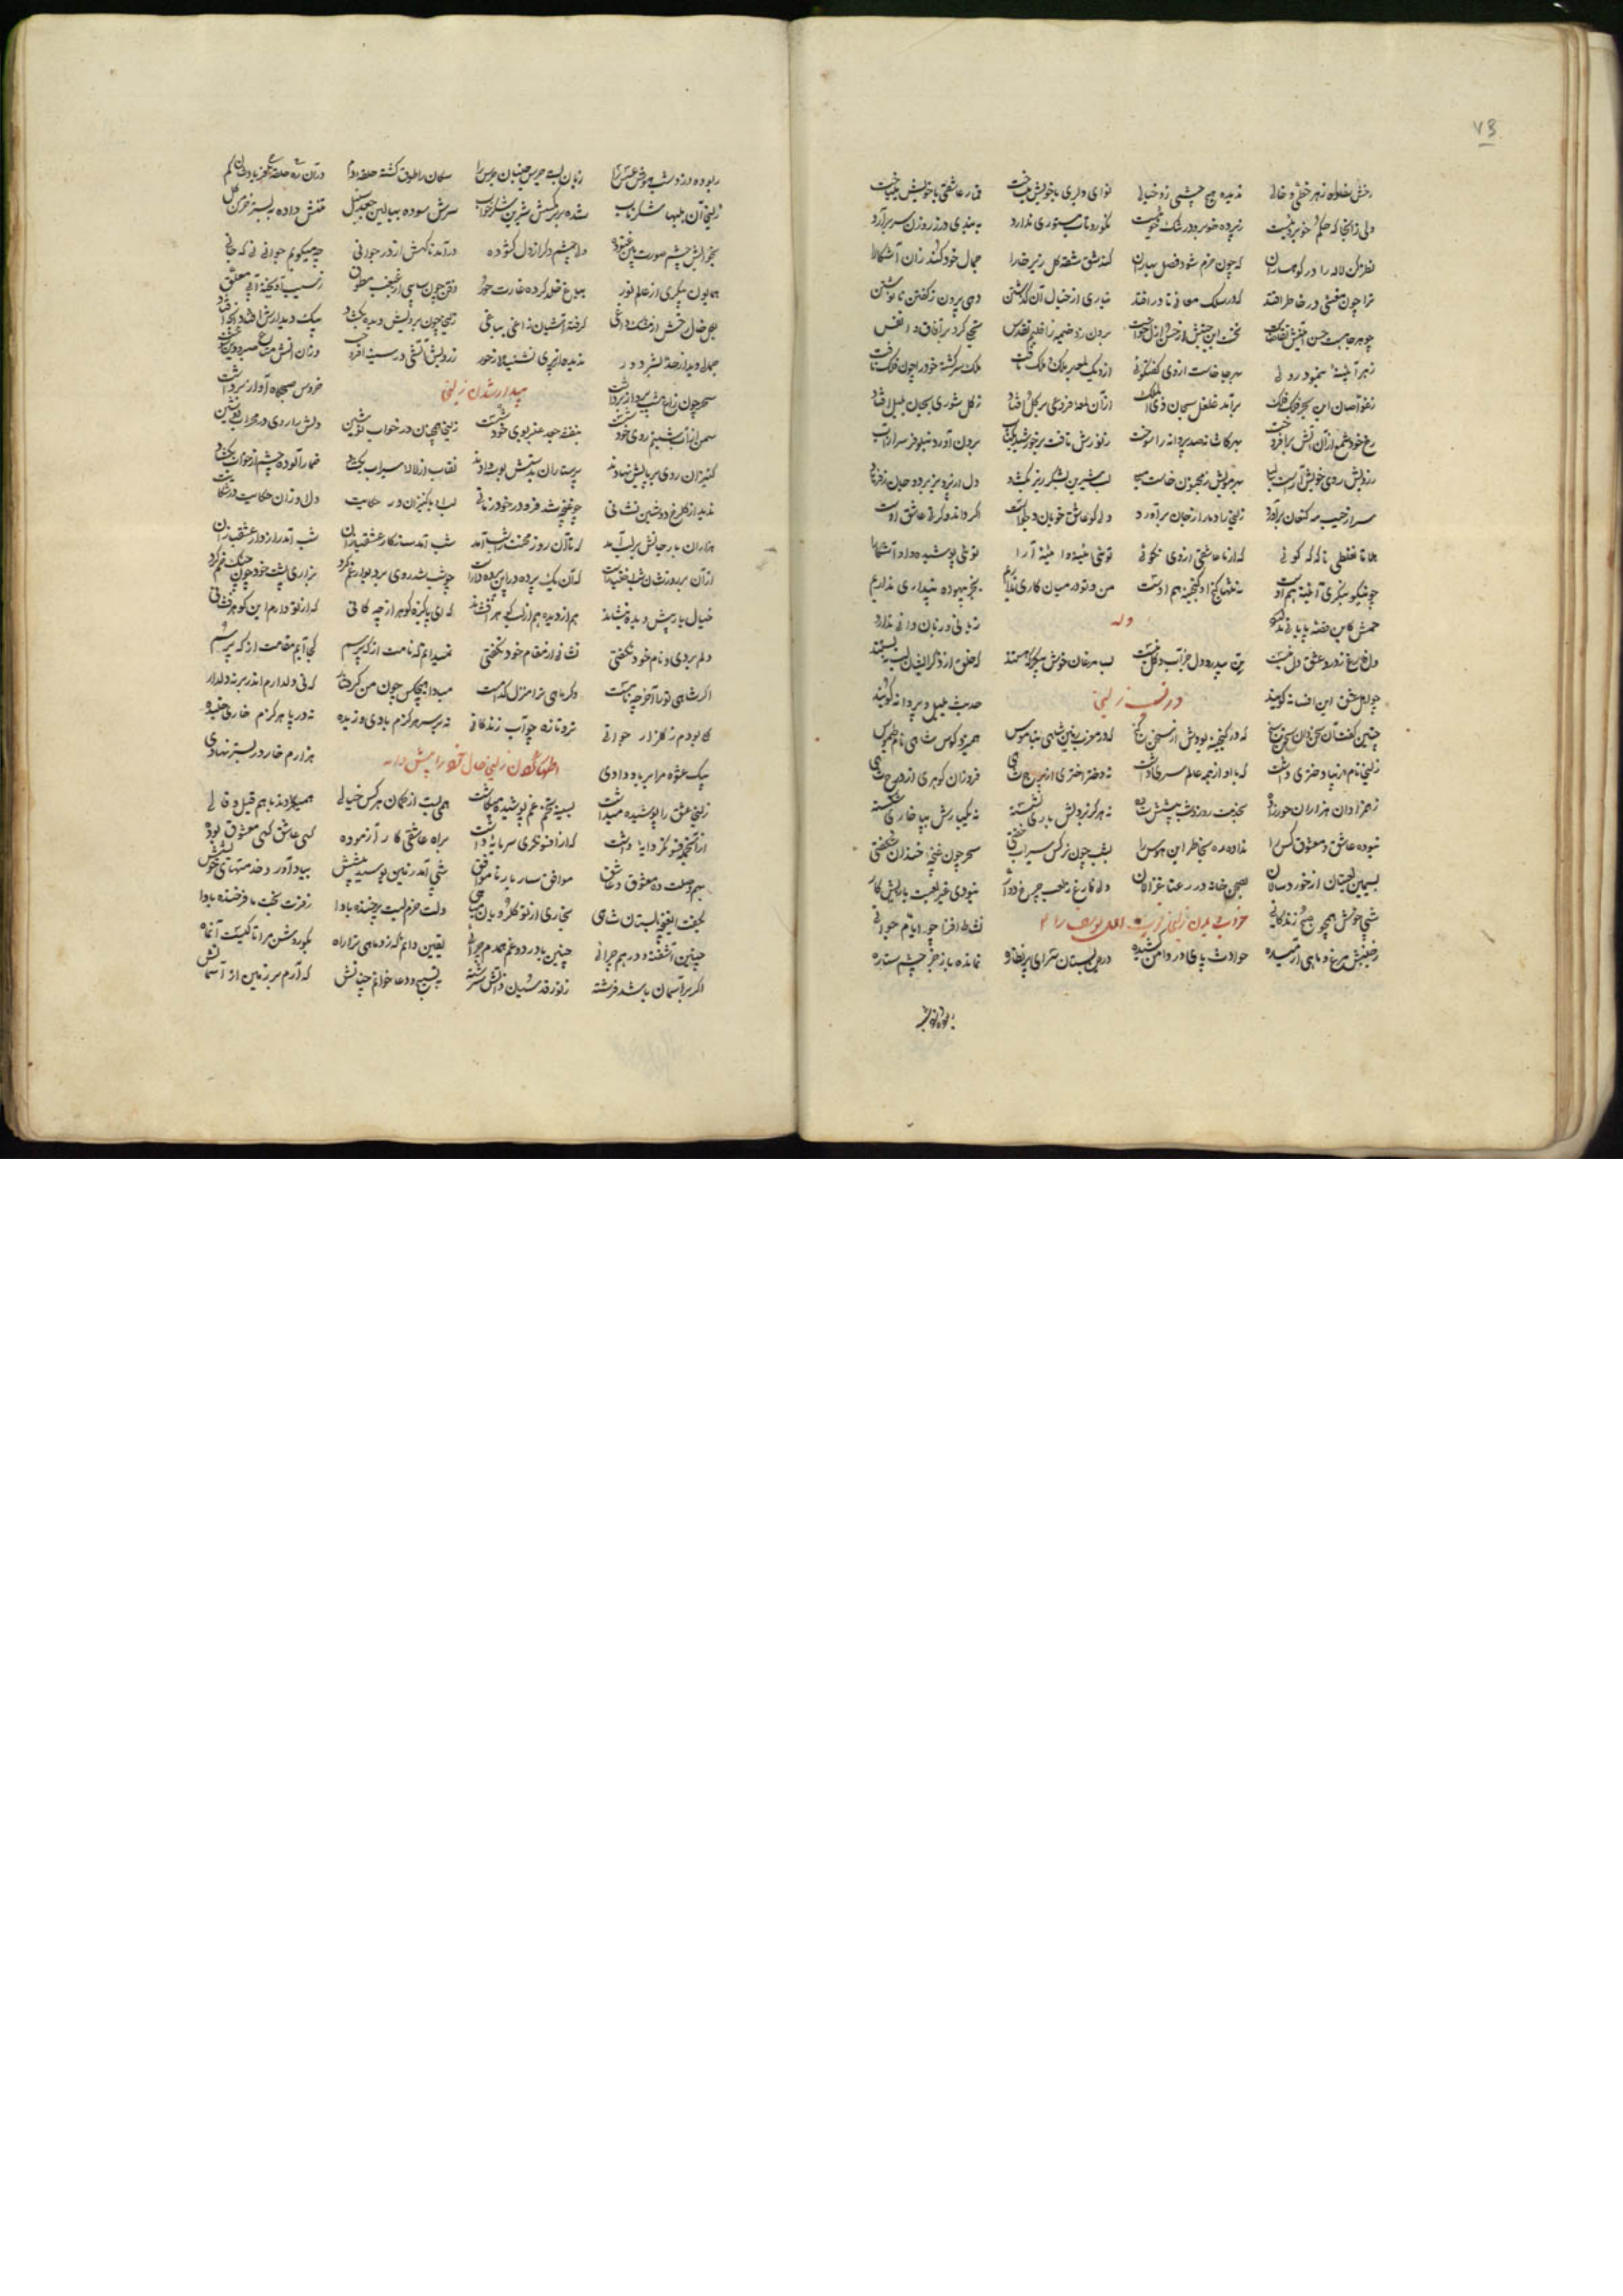 ۷۳
رخش ساده ز هر خطی و خالی ندیده هیچ چشمی زو خیالی نوای دلبری با خویش میساخت قمار عاشقی با خویش میباخت
ولی زانجا که حکم خوبروییست ز پرده خوبرو در تنگ خوییست نکورو تاب مستوری ندارد ببندی در ز روزن سر برآرد
نظر کن لاله را در کوهساران که چون خرم شود فصل بهاران کند شق شقه گل زیر خارا جمال خود کند زان آشکارا
ترا چون معنیی در خاطر افتد که در سلک معانی نادر افتد نیاری از خیال آن گذشتن دهی بیرون ز گفتن یا نوشتن
چو هر جا هست حسن اینش تقاضاست نخست این جنبش از حسن ازل خاست برون زد خیمه ز اقلیم تقدس تجلی کرد بر آفاق و انفس
ز هر آئینه بنمود رویی بهر جا خاست از وی گفتگویی ازو یک لمعه بر ملک و ملک تافت ملک سرگشته خود را چون فلک یافت
ز غواصان این بحر فلک فلک برآمد غلغل سبحان ذی الملک ازان لمعه فروغی بر گل افتاد ز گل شوری بجان بلبل افتاد
رخ خود شمع ازان آتش برافروخت بهر کاشانه صد پروانه را سوخت ز نورش تافت بر خورشید یک تاب برون آورد نیلوفر سر از آب
ز رویش روی خویش آراست لیلی بهر مویش ز مجنون خاست میلی لب شیرین بشکر ریز بگشاد دل از پرویز برد و جان ز فرهاد
سر از جیب مه کنعان برآورد زلیخا را دمار از جان برآورد دلی کو عاشق خوبان دلجوست اگر داند وگر نی عاشق اوست
هان تا نغلطی ناگه که گوئی که از ما عاشقی از وی نکوئی توئی آئینه او آئینه آرا توئی پوشیده و او آشکارا
چو نیکو بنگری آئینه هم اوست نه تنها گنج او گنجینه هم اوست من و تو در میان کاری نداریم بجز بیهوده پنداری نداریم
خمش کاین قصه پایانی ندارد وله زبانی و زبان دانی ندارد
دل فارغ ز درد عشق دل نیست تن بیدرد دل جز آب و گل نیست لب مرغان خوش که خلق از ذکر ایشان لب ببستند
چو اهل عشق این افسانه گویند زلیخا حدیث بلبل و پروانه گویند
چنین گفت آن سخن دان سخن سنج که در گنجینه بودش از سخن گنج که در مغرب زمین شاهی بناموس همی زد کوس شاهی نام طیموس
زلیخا نام زیبا دختری داشت که با او از همه عالم سری داشت نه دختر اختری از برج شاهی فروزان گوهری از درج شاهی
ز همزادان هزاران حورزاده بخدمت روز و شب پیشش ستاده نه هرگز بر دلش باری نشسته نه یکبارش بپا خاری شکسته
نبوده عاشق و معشوق کس را نداده ره بخاطر این هوس را بشب چون نرگس سیراب خفتی سحر چون غنچه خندان شگفتی
بسیمین لعبتان از خوردسالان بصحن خانه در رعنا غزالان دلی فارغ ز لعب چرخ دوار نبودی غیر لعبت بازیش کار
شبی خوش همچو صبح زندگانی خواب دیدن زلیخا یوسف را نشاط افزا چو ایام جوانی
ز جنبش مرغ و ماهی آرمیده حوادث پای در دامن کشیده درین بستان سرای پر نظاره نمانده باز جز چشم ستاره
ربوده دزد شب هوش عسس را زبان بسته جرس جنبان جرس را سگان را طوق گشته حلقه دم دران ره حلقه
زلیخا آن بلبها شکر ناب شده بر نرگسش شیرین شکر خواب سرش سوده ببالین جعد سنبل تنش داده به بستر خرمن گل
بخوابش چشم صورت بین غنوده ولی چشم دگر از دل گشوده درآمد ناگهش از در جوانی چه میگویم جوانی نی که جانی
همایون پیکری از عالم نور بباغ خلد کرده غارت حور
برخ خال خوش از مشک داغی گرفته آشیان زاغی بباغی زلیخا چون برویش دیده بگشاد بیک دیدارش افتاد آنچه افتاد
جمالی دید از حد بشر دور ندیده از پری نشنیده از حور
بیدار شدن زلیخا
سحر چون زاغ شب پرواز برداشت خروس صبحگاه آواز برداشت
سمن از آب شبنم روی خود شست بنفشه جعد عنبر بوی خود شست زلیخا همچنان در خواب نوشین دلش را روی در محراب دوشین
کنیزان روی بر پایش نهادند پرستاران بدستش بوسه دادند نقاب از لاله سیراب بگشاد خمار آلوده چشم از خواب بگشاد
ندید از گلرخ دوشین نشانی چو غنچه شد فرو در خود زمانی لب او با کنیزان در حکایت دل او زان حکایت در شکایت
هزاران بار جانش بر لب آمد که تا آن روز محنت را شب آمد شب آمد سازگار عشقبازان شب آمد رازدار عشقبازان
چو شب شد روی بر دیوار غم کرد بزاری پشت خود چون چنگ خم کرد
خیال یار پیش دیده بنشاند هم از دیده هم از لب گوهر افشاند که ای پاکیزه گوهر از چه کانی که از تو دارم این گوهر فشانی
دلم بردی و نام خود نگفتی نشانی از مقام خود نگفتی نمیدانم که نامت از که پرسم کجا آیم مقامت از که پرسم
اگر شاهی ترا آخر چه نامست وگر ماهی ترا منزل کدامست مبادا هیچکس چون من گرفتار که نی دل دارم اندر بر نه دلدار
گلی بودم ز گلزار جوانی تر و تازه چو آب زندگانی نه بر سر هرگزم بادی وزیده نه در پا هرگزم خاری خلیده
بیک عشوه مرا بر باد دادی هزارم خار در بستر نهادی
زلیخا عشق را پوشیده میداشت بسینه تخم غم پوشیده میکاشت همی بست از گمان هر کس خیالی همیکردند با هم قیل و قالی
ازان جمله فسونگر دایه داشت که از افسونگری سرمایه داشت براه عاشقی کار آزموده گهی عاشق گهی معشوق بوده
بهم وصلت ده معشوق و عاشق موافق ساز یار ناموافق شبی آمد زمین بوسید پیشش بیاد آورد خدمتهای خویشش
بگفت ای غنچه بستان شاهی بخاری از تو گلرویان مباهی دلت خرم لبت پرخنده بادا ز فرت بخت ما فرخنده بادا
چنین آشفته و درهم چرایی چنین با درد و غم همدم چرایی یقین دانم که زد ماهی ترا راه بگو روشن مرا تا کیست آن ماه
اگر بر آسمان باشد فرشته ز نور قدسیان ذاتش سرشته بتسبیح و دعا خوانم چنانش که آرم بر زمین از آسمانش